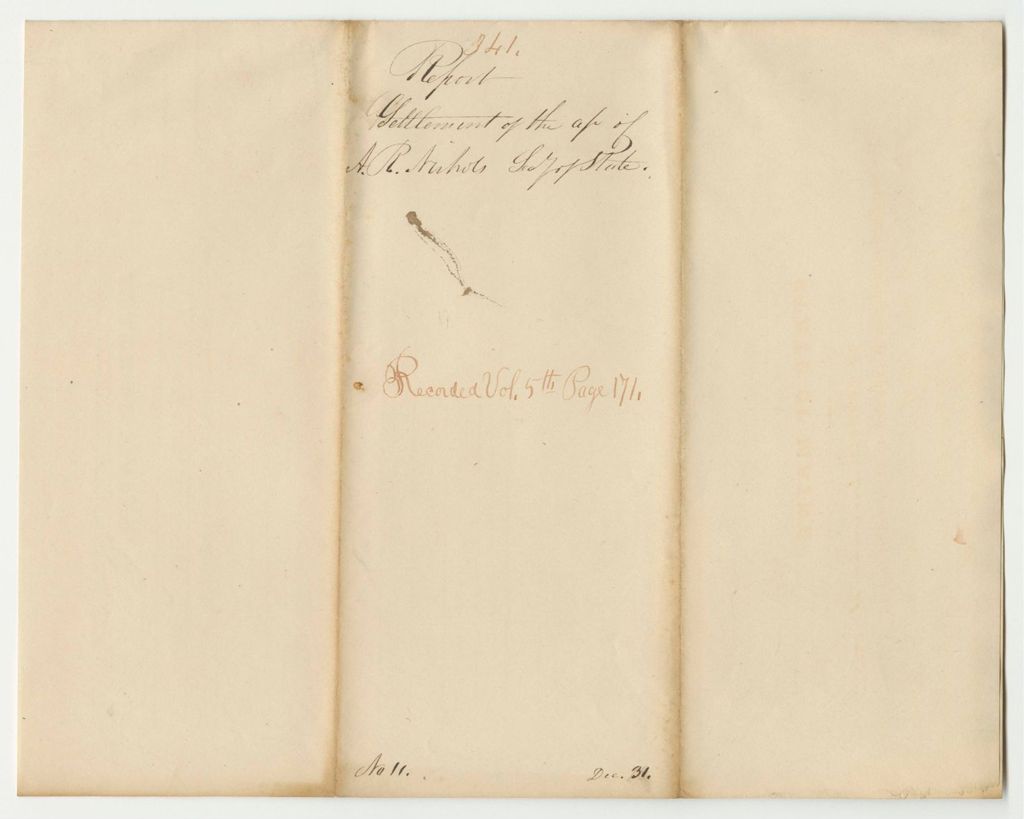 341.
Report
Settlement of the a/c of
A. R. Nichols Secy of State.
Recorded Vol. 5th Page 171.
No 11.
Dec. 31.